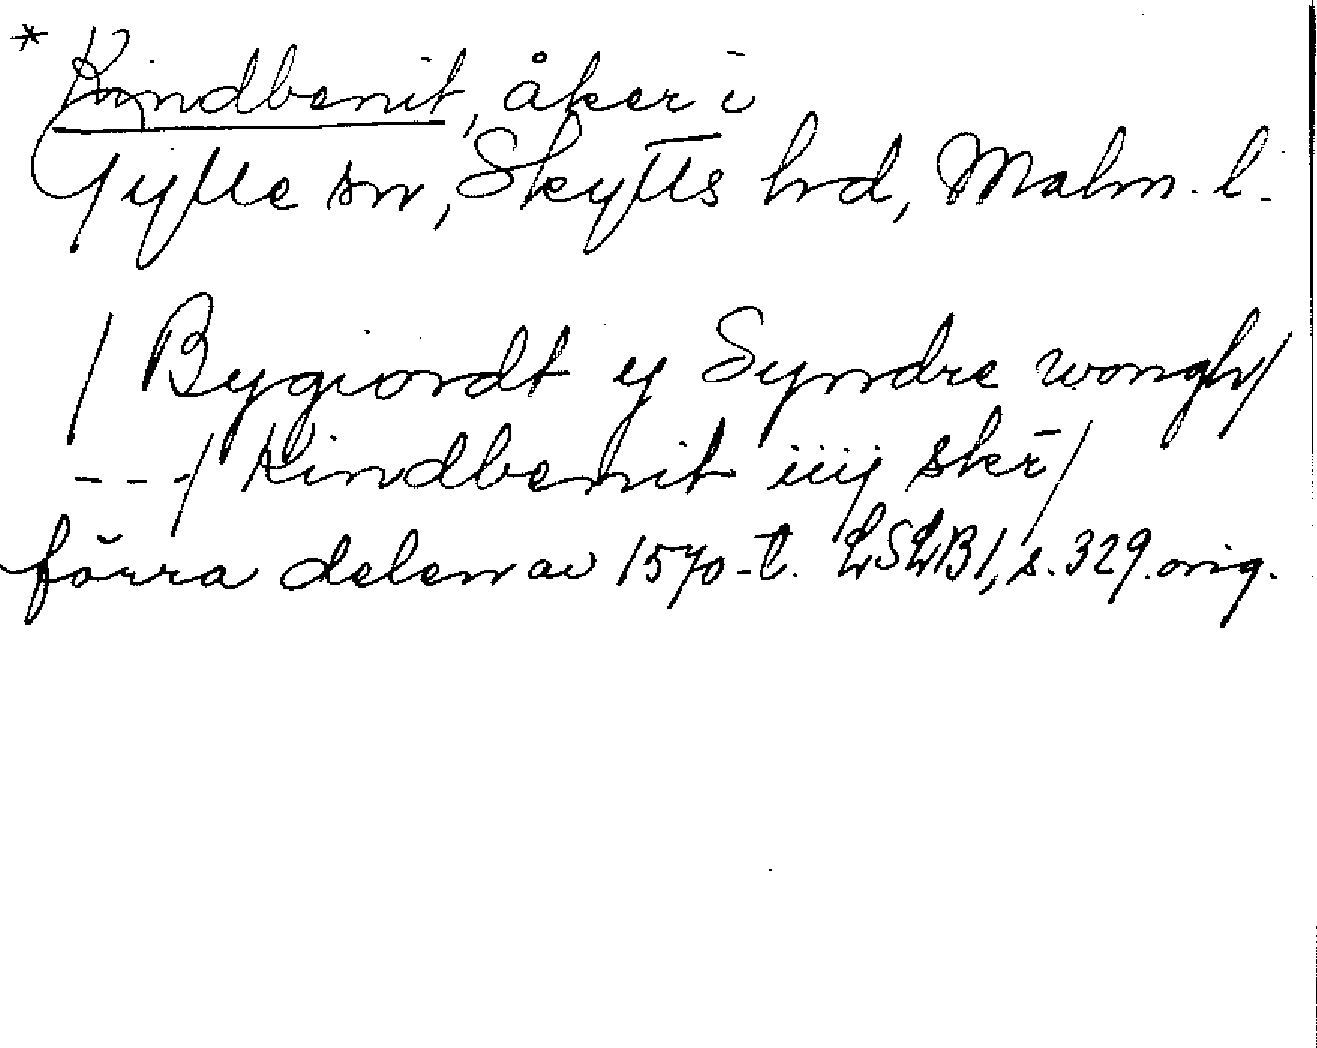 * Kindbenit, åker i
Gylle sn, Skytts hd, Malm. l.
/ Bygiordt y Syndre wongh/
---/ Kindbenit iiij skr̄/
förra delen av 1570-t. LSLB1, s. 329. orig.